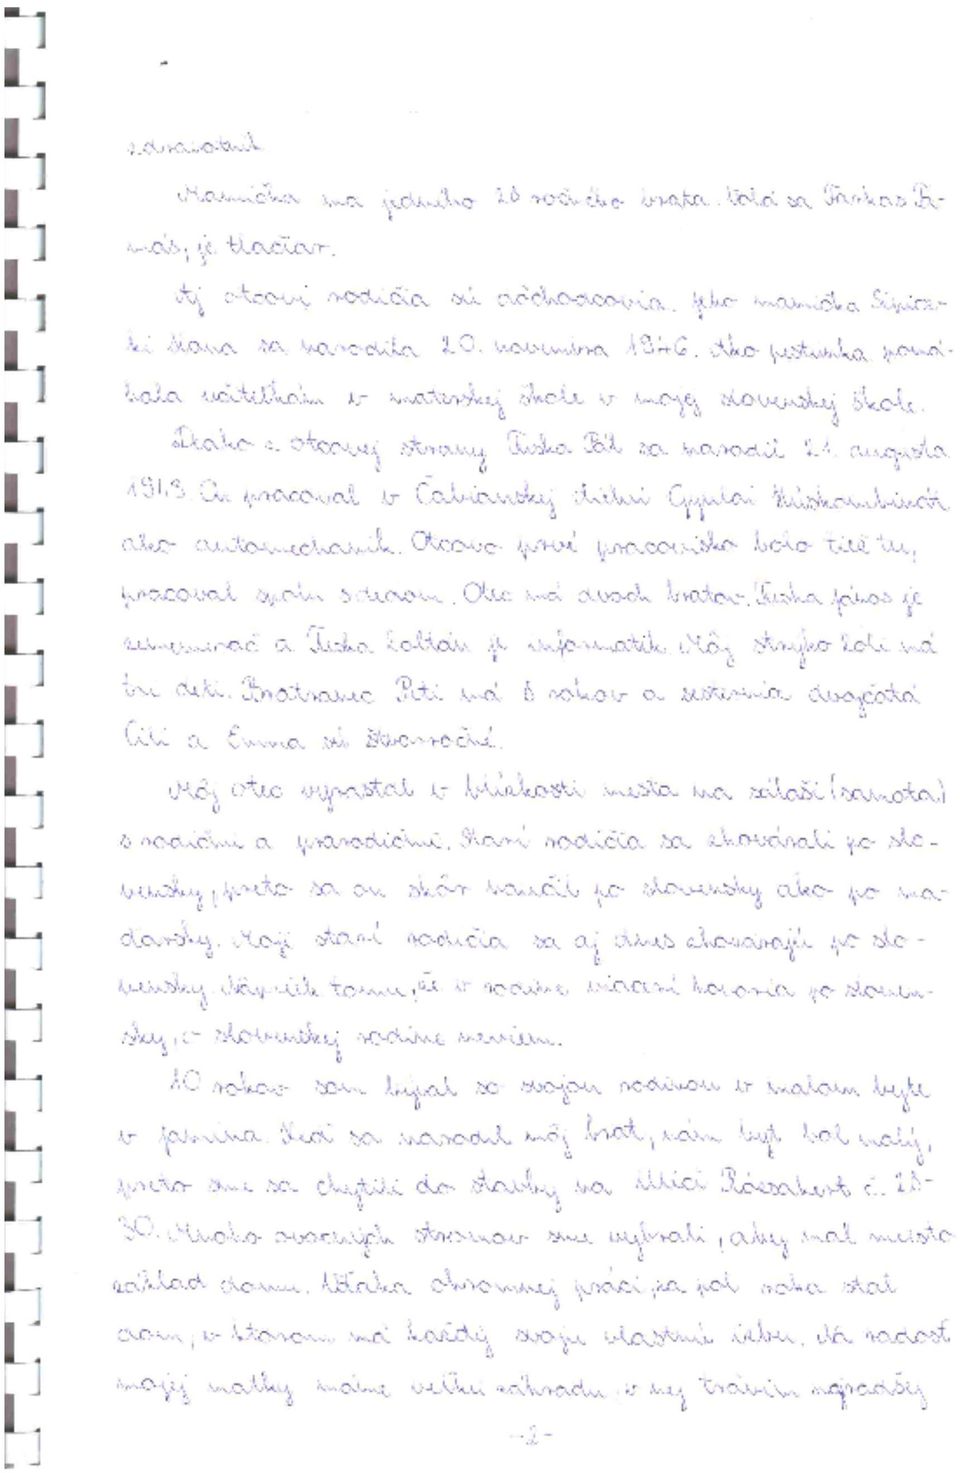 zdravotník.
Mamička ma jedného 28 ročného brata. Volá sa Farkas Ta-
más, je tlačiar.
Aj otcovi rodičia sú dôchodcovia. Jeho mamička
Hana sa narodila 20. novembra 1946. Ako pestúnka pomá-
hala učiteľkám v materskej škole v mojej slovenskej škole.
Dedko z otcovej strany Pál sa narodil 21. augusta
1943. On pracoval v Čabianskej dielni Gyulai Húskombinát
ako automechanik. Otcovo prvé pracovisko bolo tiež tu,
pracoval spolu s dedom. Otec má dvoch bratov. János je
zememerač a Zoltán je informatik. Môj strýko Zoli má
tri deti. Bratranec Peti má 8 rokov a sesternia dvojčatá
Lili a Emma sú štvorročné.
Môj otec vyrastal v blízkosti mesta na sálaši (samota)
s rodičmi a prarodičmi. Starí rodičia sa zhovárali po slo-
vensky, preto sa on skôr naučil po slovensky ako po ma-
ďarsky. Moji starí rodičia sa aj dnes zhovárajú po slo-
vensky. Napriek tomu, že v rodine viacerí hovoria po sloven-
sky, o slovenskej rodine neviem.
10 rokov som býval so svojou rodinou v malom byte
v Jamina. Keď sa narodil môj brat, nám byt bol malý,
preto sme sa chytili do stavby na ulici Rózsakert č. 28-
30. Mnoho ovocných stromov sme vybrali, aby mal miesto
základ domu. Vďaka ohromnej práci, za pol roka stál
dom, v ktorom má každý svoju vlastnú izbu. Na radosť
mojej matky máme veľkú záhradu, v nej trávim najradšej
-2-